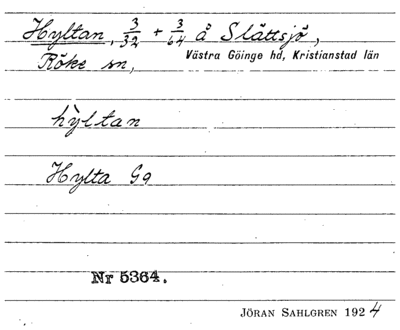 Hyltan, 3/32 + 3/64 å Slättsjö,
Röke sn, Västra Göinge hd, Kristianstad län
hỳltan
Hylta Gg
Nr 5364.
JÖRAN SAHLGREN 1924